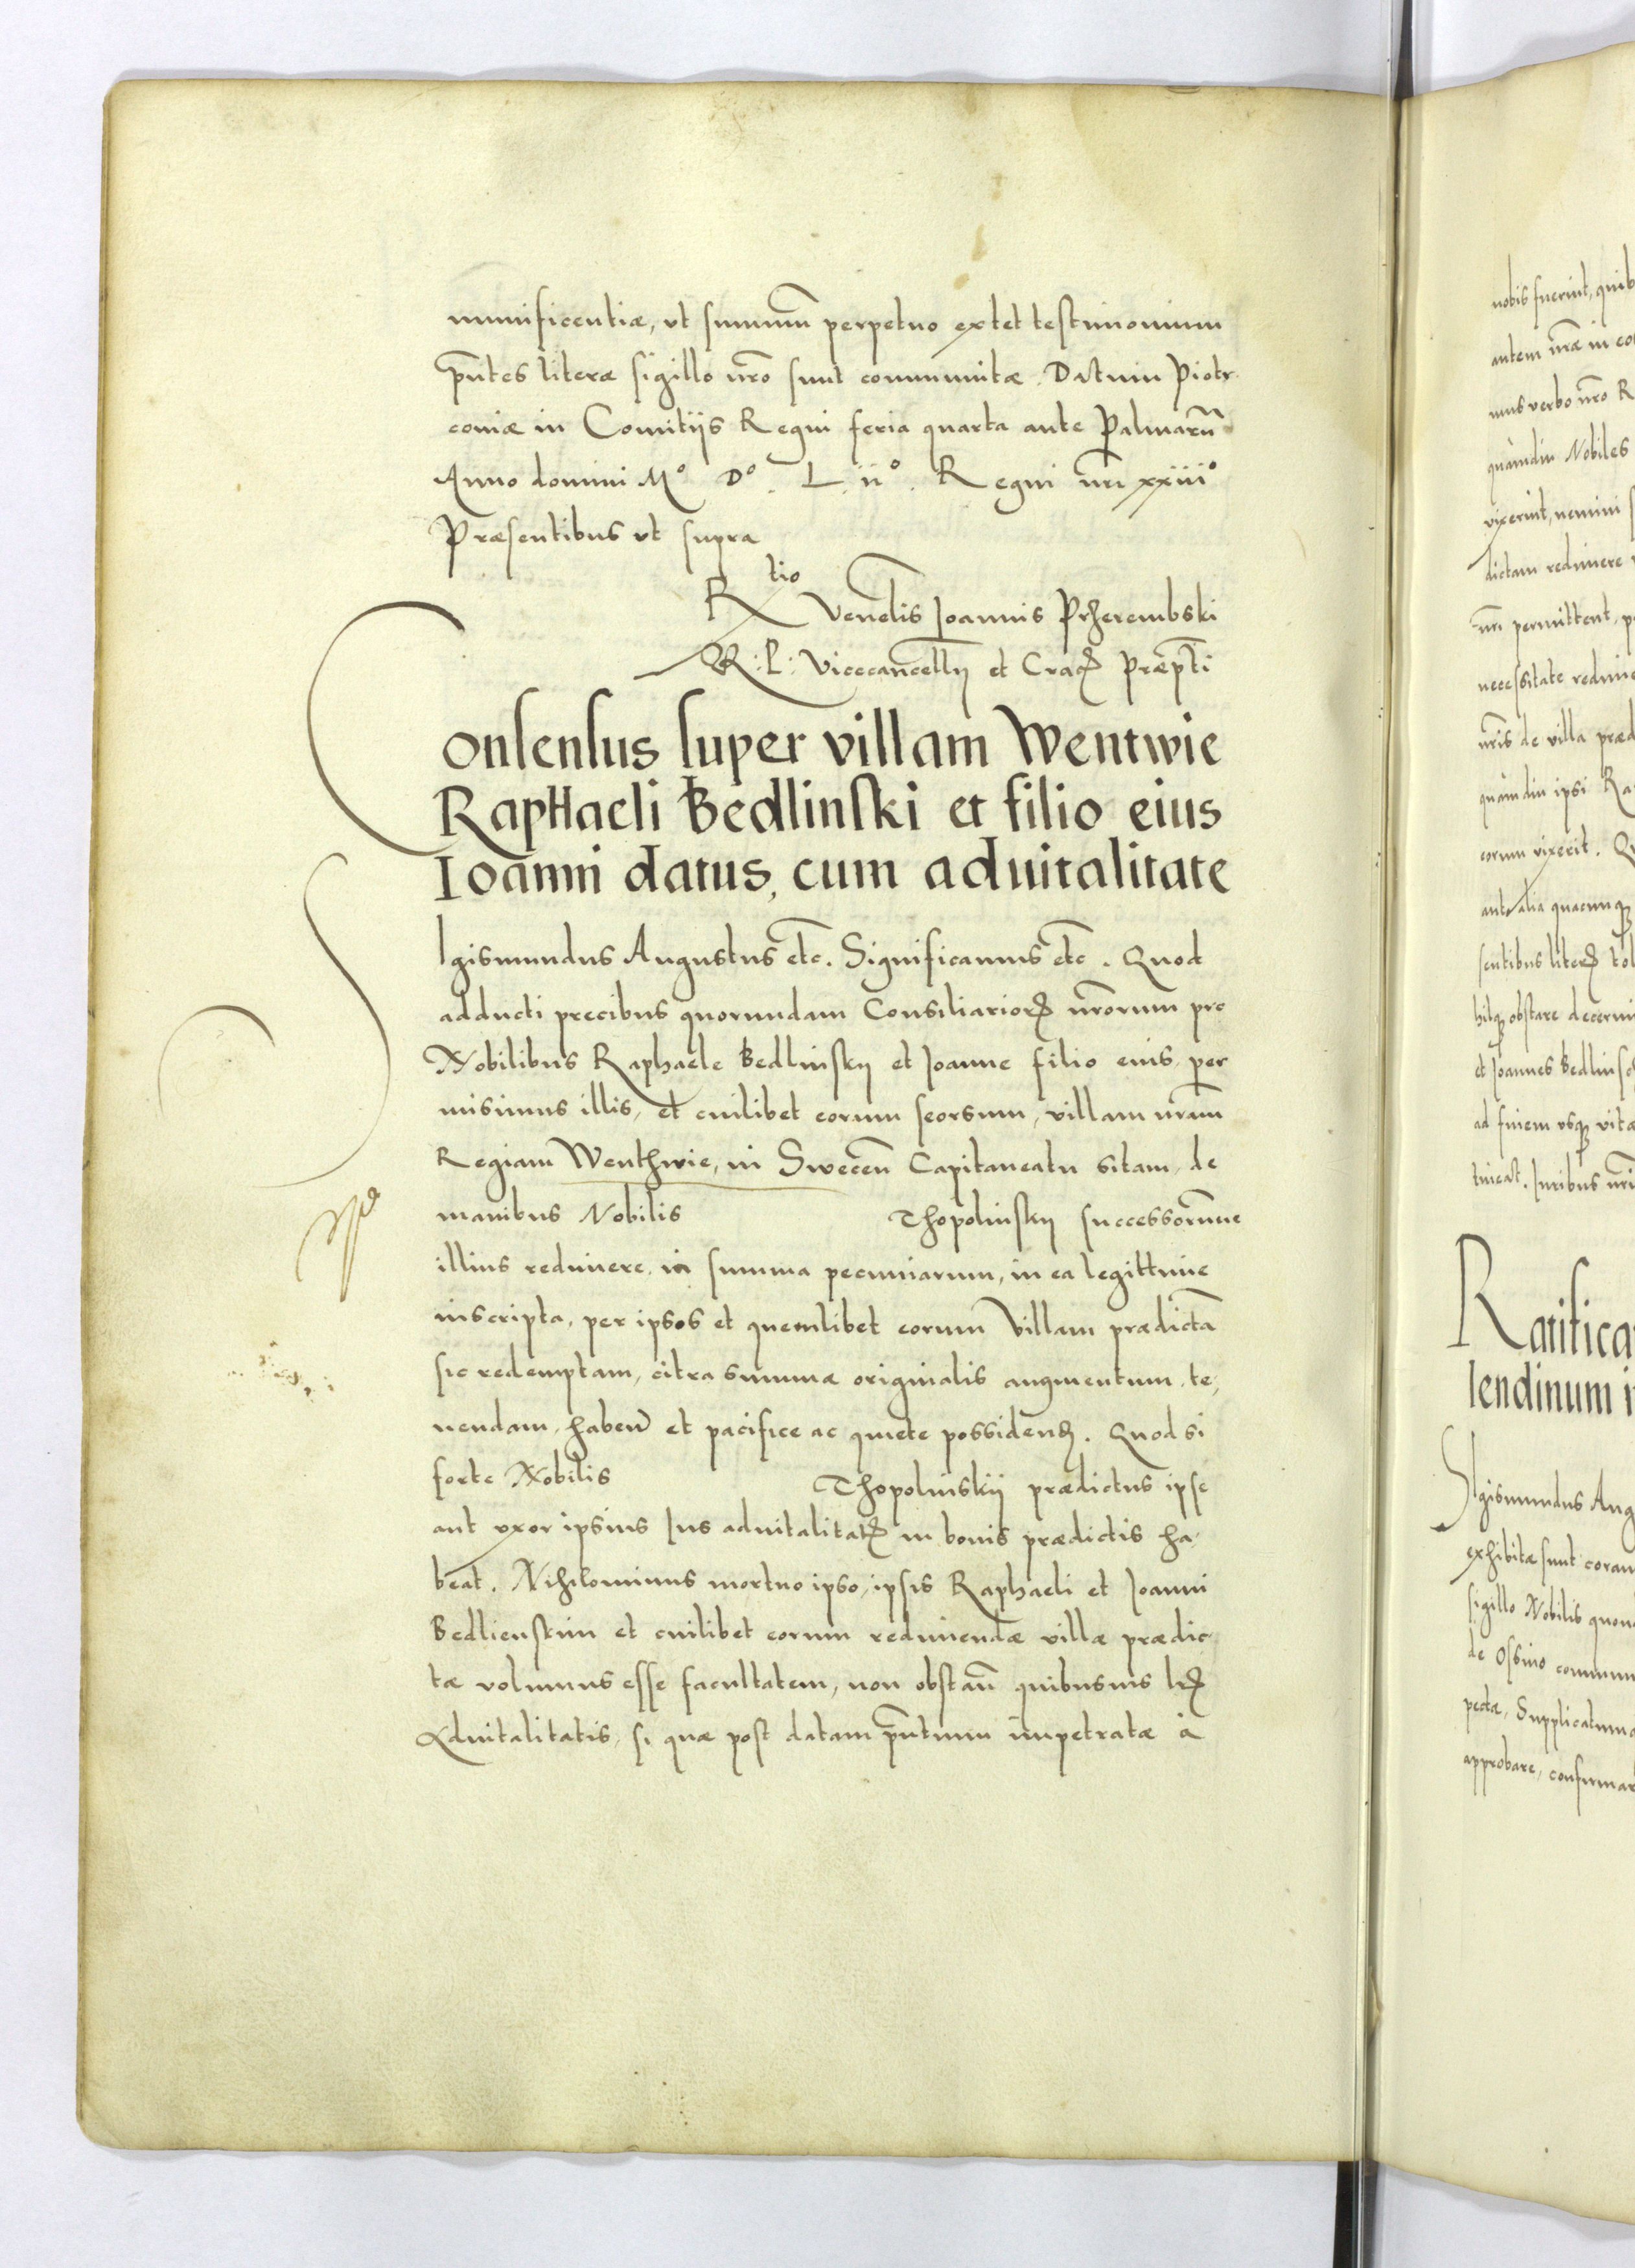 munificentiæ, ut summum perpetuo extet testimonium
p̄ntes literæ sigillo n̄ro sunt communitæ. Datum Piotr
coniæ in Comitiis Regni feria quarta ante Palmarū
Anno domini Mº. Dº. L. iiº. Regni n̄ri xxiiiº
Præsentibus ut supra
Rtio Venēlis Joannis Przerembski
R: P: Vicecancellij et Craco Præpti
Consensus super villam Wentwie
Raphaeli Bedlinski et filio eius
Ioanni datus, cum aduitalitate
SIgismundus Augustus etc. Significamus etc. Quod
adducti precibus quorundam Consiliarioꝝ n̄rorum pro
Nobilibus Raphaele Bedlinskij et Joanne filio eius, per
misimus illis, et cuilibet eorum seorsum, villam n̄ram
Regiam Wenthwie, in Swecen̄ Capitaneatu sitam, de
manibus Nobilis Thopolinskij successorumue
illius redimere, in summa pecuniarum, in ea legittime
inscripta, per ipsos et quemlibet eorum Villam prædictā
sic redemptam, citra summæ originalis augmentum, te,
nendam, haben̄ et pacifice ac quiete possidenꝺ. Quod si
forte Nobilis Thopolinskii prædictus ipse
aut uxor ipsius Jus aduitalitatꝭ in bonis prædictis ha,
beat. Nihilominus mortuo ipso, ipsis Raphaeli et Joanni
Bedlienskim et cuilibet eorum redimendæ villæ prædic
tæ volumus esse facultatem, non obstan̄ quibusuis lr̄ꝭ
Aduitalitatis, si quæ post datam p̄ntium impetratæ à
nobis fuerint, quib
autem n̄ræ in co
mus verbo n̄ro R
quàmdiu Nobiles
vixerint, nemini
dictam redimere
n̄ri permittent, p
necessitate redime
n̄ris de villa præd
quàmdiu ipsi Ra
eorum vixerit. Q
ante alia quacunqꝫ
sentibus literꝭ tol
hilqꝫ obstare decerni
et Joannes Bedlinsc
ad finem usqꝫ vitæ
tineat. Juribus n̄ri
Ratifica
lendinum i
SIgismundus Aug
exhibitæ sunt coram
sigillo Nobilis quon
de Ossino commun
pectæ, Supplicatumq
approbare, confirmar